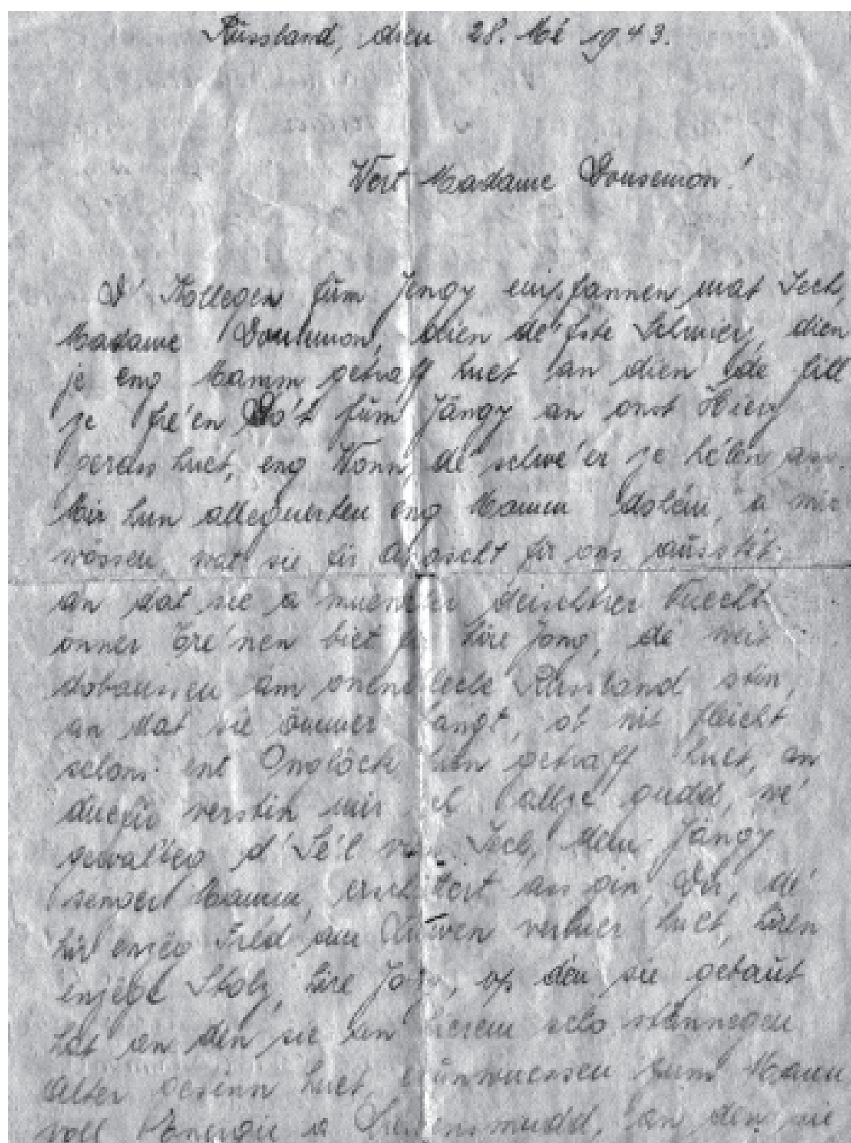 Russland, dien 28. Mé 1943.
Wert Madame Dousemon!
D' Kollegen fum Jengy empfannen mat Iech,
Madame Dousemon, dien defste Schmierz, dien
je eng Mamm getraff huet an dien de fill
ze fre'en Do't fum Jängy an onst Hierz
gerass huet, eng Wonn, de' schwe'er ze hélen ass.
Mir hun allequerten eng Mamm dohém, a mir
wössen, wat sie fir Angscht fir ons aussti't
an dat sie a muencher deischter Nuecht
önner Tre'nen biet fir hire Jong, de weit
dobaussen am onendleche Russland stin,
an dat sie ömmer bangt, ob nit fleicht
schons ent Onglöck hien getraff huet, an
duefir verstin mir et allze gudd, we'
gewalteg d' Se'l vun Iech, dem Jängy
senger Mamm, erschöttert ass gin, Dir, de'
hir enzeg Fred am Liewen verluer huet, hiren
enzege Stolz, hire Jong, op dén sie gebaut
hat an den sie an hirem selbstännegen
Alter gesinn huet, erunwuessen zum Mann
voll Energie a Liewensmudd, an den sie